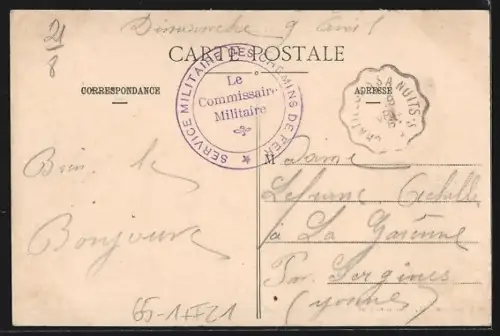 Dimanche 9 Avril
21/8
CARTE POSTALE
CORRESPONDANCE
ADRESSE
SERVICE MILITAIRE DES CHEMINS DE FER
Le
Commissaire
Militaire
A NUITS
Bien le
Bonjour
Madame
Lefranc Achille
à La Garenne
Par Sergines
(Yonne)
65-17721